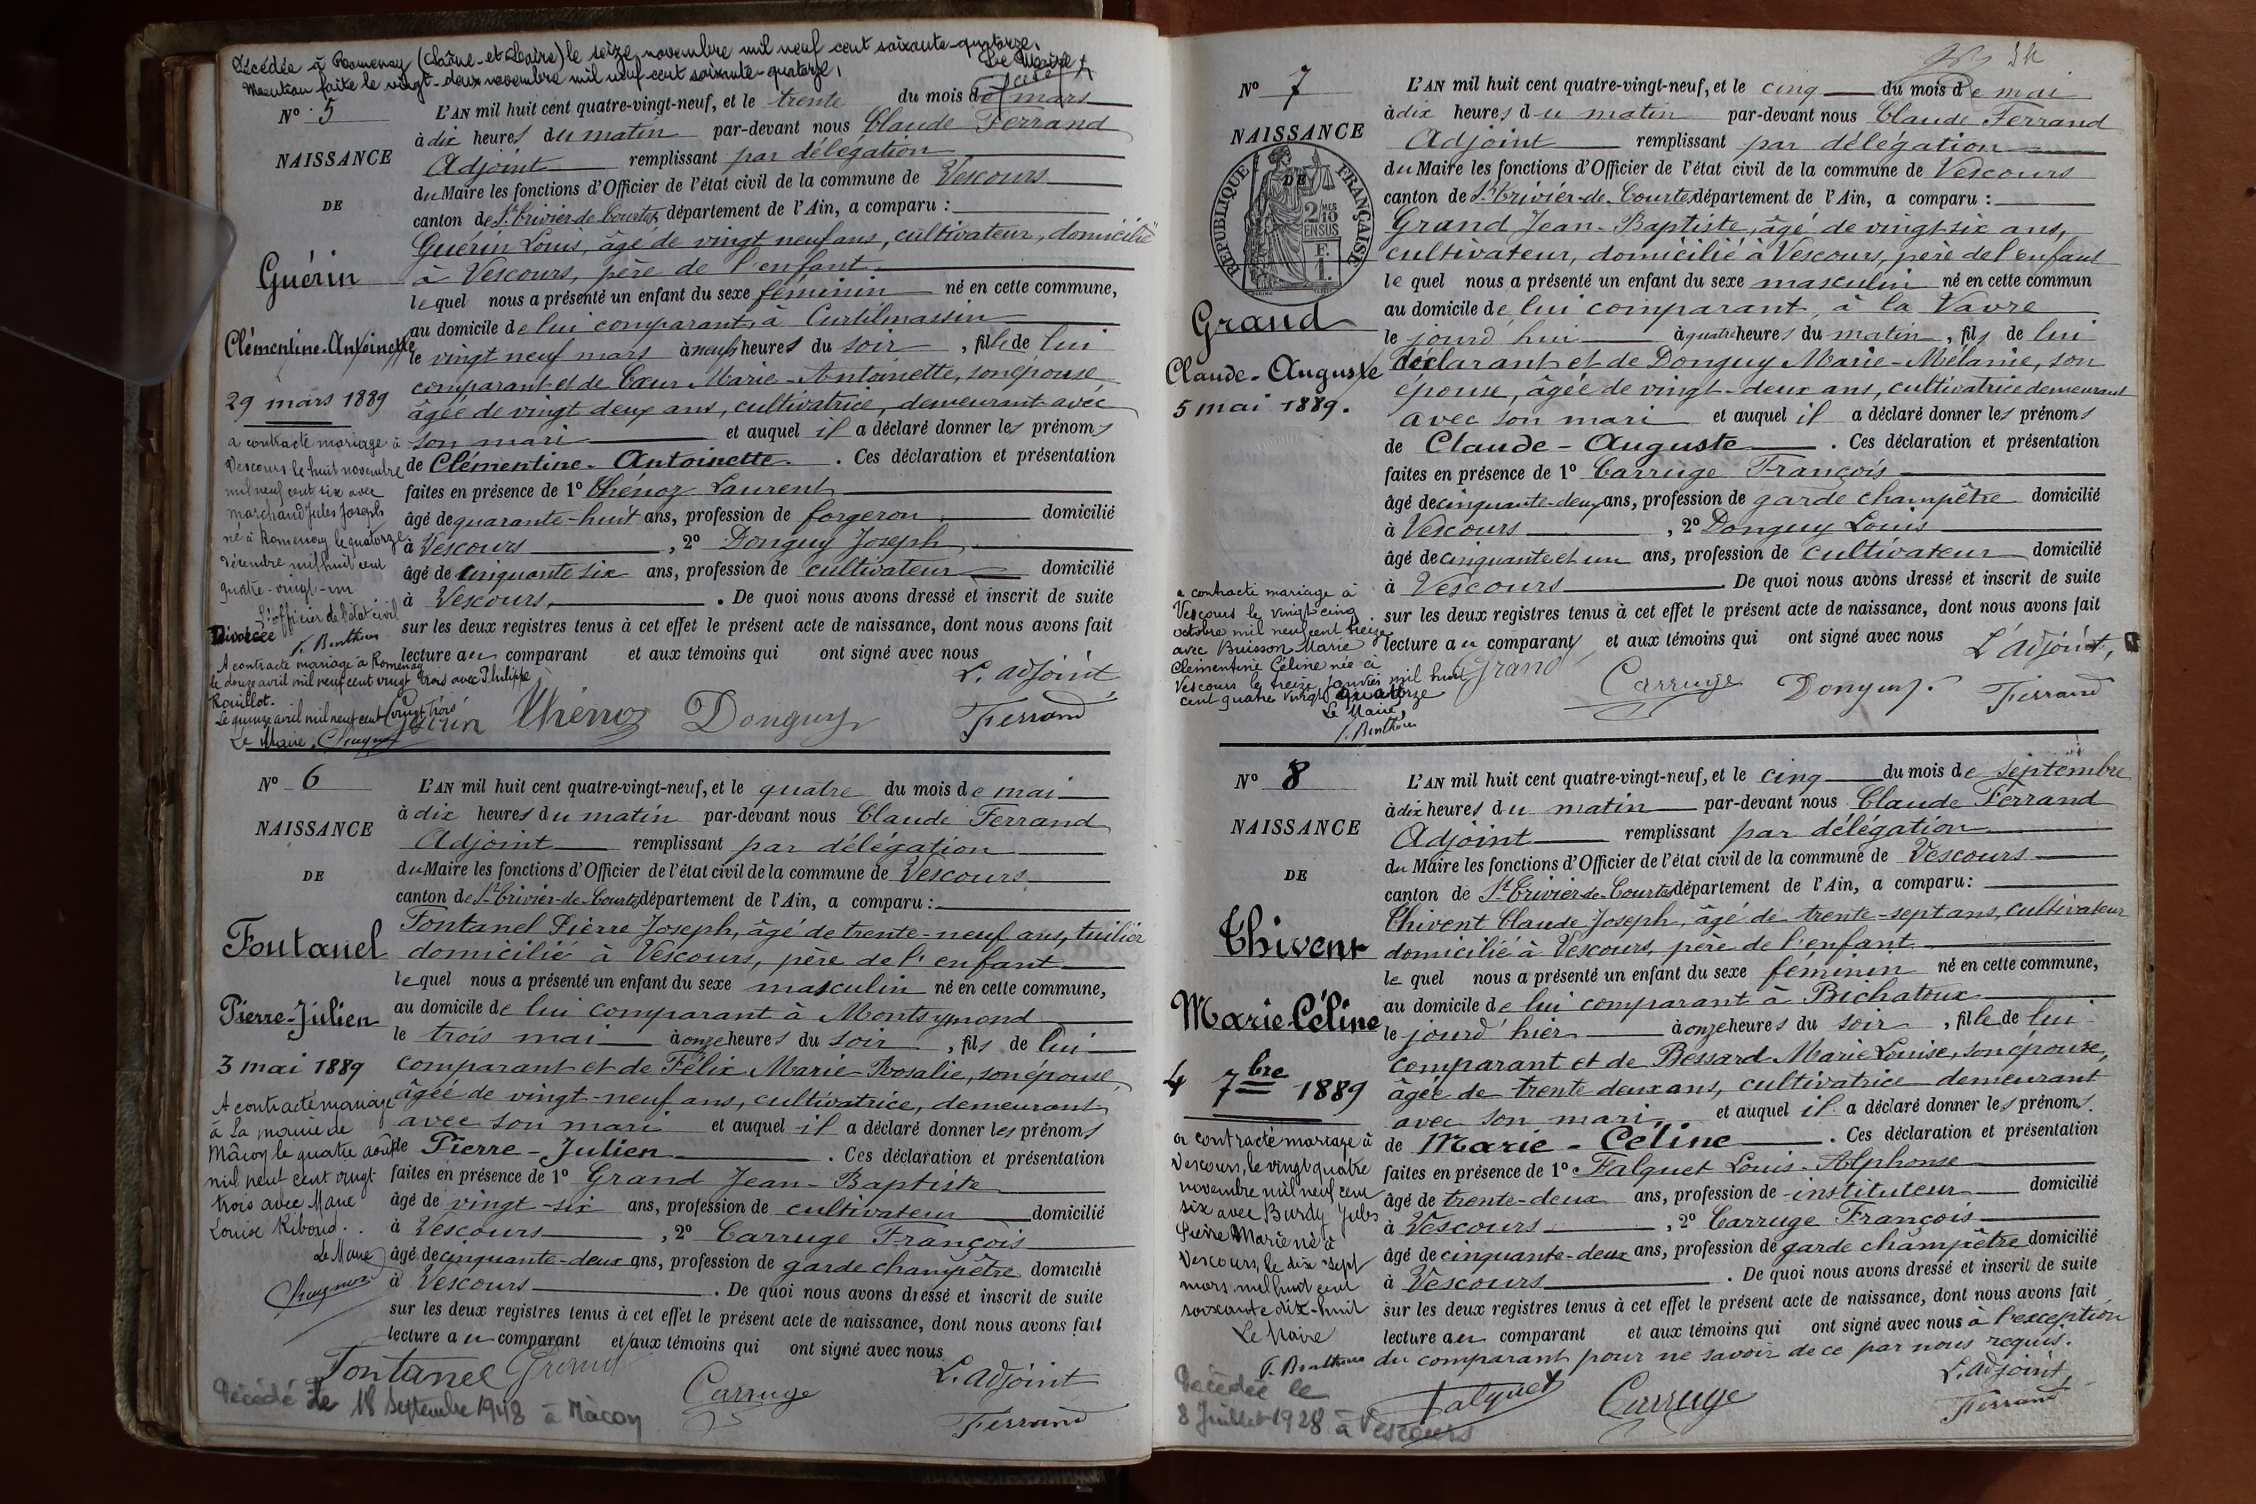 Décédée à Romenay (Saône-et-Loire) le seize novembre mil neuf cent soixante-quatorze.
Mention faite le vingt-deux novembre mil neuf cent soixante-quatorze,
Le Maire
Nº 5
NAISSANCE
DE
Guérin
Clémentine-Antoinette
29 mars 1889
a contracté mariage à
Vescours le huit novembre
mil neuf cent six avec
Marchand Jules Joseph
né à Romenay le quatorze
décembre mil huit cent
quatre-vingt-un
L'officier de l'état civil
J. Benthem
Divorcée
A contracté mariage à Romenay
le douze avril mil neuf cent vingt trois avec Philippe
Rouillot.
Le quinze avril mil neuf cent vingt trois
Le Maire,
L'AN mil huit cent quatre-vingt-neuf, et le trente du mois de mars
à dix heures du matin par-devant nous Claude Ferrand
Adjoint remplissant par délégation
du Maire les fonctions d'Officier de l'état civil de la commune de Vescours
canton de St Trivier-de-Courtes, département de l'Ain, a comparu :
Guérin Louis, âgé de vingt neuf ans, cultivateur, domicilié
à Vescours, père de l'enfant
lequel nous a présenté un enfant du sexe féminin né en cette commune,
au domicile de lui comparant, à Curtilmassin
le vingt neuf mars à neuf heures du soir, fille de lui
comparant et de Cœur Marie-Antoinette, son épouse
âgée de vingt deux ans, cultivatrice, demeurant avec
son mari et auquel il a déclaré donner les prénoms
de Clémentine-Antoinette. Ces déclaration et présentation
faites en présence de 1º Thénoz Laurent
âgé de quarante-huit ans, profession de forgeron, domicilié
à Vescours, 2º Donguy Joseph
âgé de cinquante six ans, profession de cultivateur domicilié
à Vescours. De quoi nous avons dressé et inscrit de suite
sur les deux registres tenus à cet effet le présent acte de naissance, dont nous avons fait
lecture au comparant et aux témoins qui ont signé avec nous
L'adjoint
Guérin Thénoz Donguy Ferrand
Nº 6
NAISSANCE
DE
Fontanel
Pierre-Julien
3 mai 1889
A contracté mariage
à la mairie de
Mâcon le quatre août
mil neuf cent vingt
trois avec Marie
Louise Riboud.
Le Maire
L'AN mil huit cent quatre-vingt-neuf, et le quatre du mois de mai
à dix heures du matin par-devant nous Claude Ferrand
Adjoint remplissant par délégation
du Maire les fonctions d'Officier de l'état civil de la commune de Vescours
canton de St Trivier-de-Courtes département de l'Ain, a comparu :
Fontanel Pierre Joseph, âgé de trente-neuf ans, tuilier
domicilié à Vescours, père de l'enfant
lequel nous a présenté un enfant du sexe masculin né en cette commune,
au domicile de lui comparant à Montsymond
le trois mai à onze heures du soir, fils de lui
comparant et de Félix Marie-Rosalie, son épouse,
âgée de vingt-neuf ans, cultivatrice, demeurant
avec son mari et auquel il a déclaré donner les prénoms
de Pierre-Julien. Ces déclaration et présentation
faites en présence de 1º Grand Jean-Baptiste
âgé de vingt-six ans, profession de cultivateur domicilié
à Vescours, 2º Carruge François
âgé de cinquante-deux ans, profession de garde champêtre domicilié
à Vescours. De quoi nous avons dressé et inscrit de suite
sur les deux registres tenus à cet effet le présent acte de naissance, dont nous avons fait
lecture au comparant et aux témoins qui ont signé avec nous
Fontanel Grand Carruge L'adjoint
Ferrand
Décédé le 18 Septembre 1948 à Mâcon
Nº 7
NAISSANCE
DE
RÉPUBLIQUE FRANÇAISE
2/10 MES
EN SUS
F.
1.
Grand
Claude-Auguste
5 mai 1889.
a contracté mariage à
Vescours le vingt-cinq
octobre mil neuf cent treize
avec Buisson Marie
Clémentine Céline née à
Vescours le treize janvier mil huit
cent quatre vingt quatorze
Le Maire,
J. Benthem
L'AN mil huit cent quatre-vingt-neuf, et le cinq du mois de mai
à dix heures du matin par-devant nous Claude Ferrand
Adjoint remplissant par délégation
du Maire les fonctions d'Officier de l'état civil de la commune de Vescours
canton de St Trivier-de-Courtes département de l'Ain, a comparu :
Grand Jean-Baptiste, âgé de vingt-six ans,
cultivateur, domicilié à Vescours, père de l'enfant
lequel nous a présenté un enfant du sexe masculin né en cette commun
au domicile de lui comparant, à la Vavre
le jourd'hui à quatre heures du matin, fils de lui
déclarant et de Donguy Marie-Mélanie, son
épouse, âgée de vingt-deux ans, cultivatrice demeurant
avec son mari et auquel il a déclaré donner les prénoms
de Claude-Auguste. Ces déclaration et présentation
faites en présence de 1º Carruge François
âgé de cinquante-deux ans, profession de garde champêtre domicilié
à Vescours, 2º Donguy Louis
âgé de cinquante et un ans, profession de cultivateur domicilié
à Vescours. De quoi nous avons dressé et inscrit de suite
sur les deux registres tenus à cet effet le présent acte de naissance, dont nous avons fait
lecture au comparant et aux témoins qui ont signé avec nous L'adjoint,
Grand Carruge Donguy. Ferrand
Nº 8
NAISSANCE
DE
Thivent
Marie-Céline
4 7bre 1889
a contracté mariage à
Vescours, le vingt quatre
novembre mil neuf cent
six avec Burdy Jules
Pierre Marie né à
Vescours, le dix sept
mars mil huit cent
soixante dix-huit
Le Maire
J. Benthem
Décédée le
8 Juillet 1928 à Vescours
L'AN mil huit cent quatre-vingt-neuf, et le cinq du mois de septembre
à dix heures du matin par-devant nous Claude Ferrand
Adjoint remplissant par délégation
du Maire les fonctions d'Officier de l'état civil de la commune de Vescours
canton de St Trivier-de-Courtes département de l'Ain, a comparu :
Thivent Claude Joseph, âgé de trente-sept ans, cultivateur
domicilié à Vescours, père de l'enfant
lequel nous a présenté un enfant du sexe féminin né en cette commune,
au domicile de lui comparant à Bichatoux
le jourd'hier à onze heures du soir, fille de lui
comparant et de Bessard Marie Louise, son épouse,
âgée de trente deux ans, cultivatrice demeurant
avec son mari, et auquel il a déclaré donner les prénoms
de Marie-Céline. Ces déclaration et présentation
faites en présence de 1º Falquet Louis-Alphonse
âgé de trente-deux ans, profession de instituteur domicilié
à Vescours, 2º Carruge François
âgé de cinquante-deux ans, profession de garde champêtre domicilié
à Vescours. De quoi nous avons dressé et inscrit de suite
sur les deux registres tenus à cet effet le présent acte de naissance, dont nous avons fait
lecture au comparant et aux témoins qui ont signé avec nous à l'exception
du comparant pour ne savoir de ce par nous requis.
L'adjoint,
Falquet Carruge Ferrand